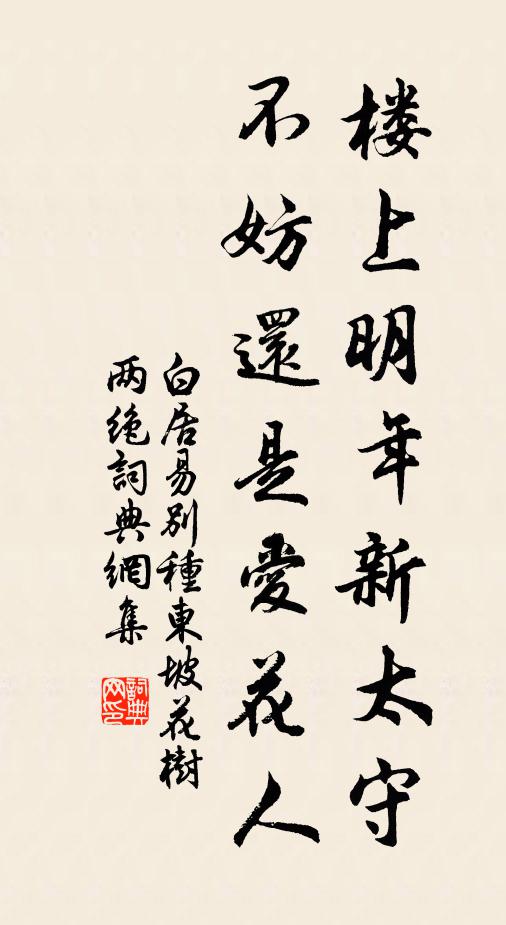 楼上明年新太守
不妨還是愛花人
白居易別種東坡花樹
两绝詞典網集
詞典网印